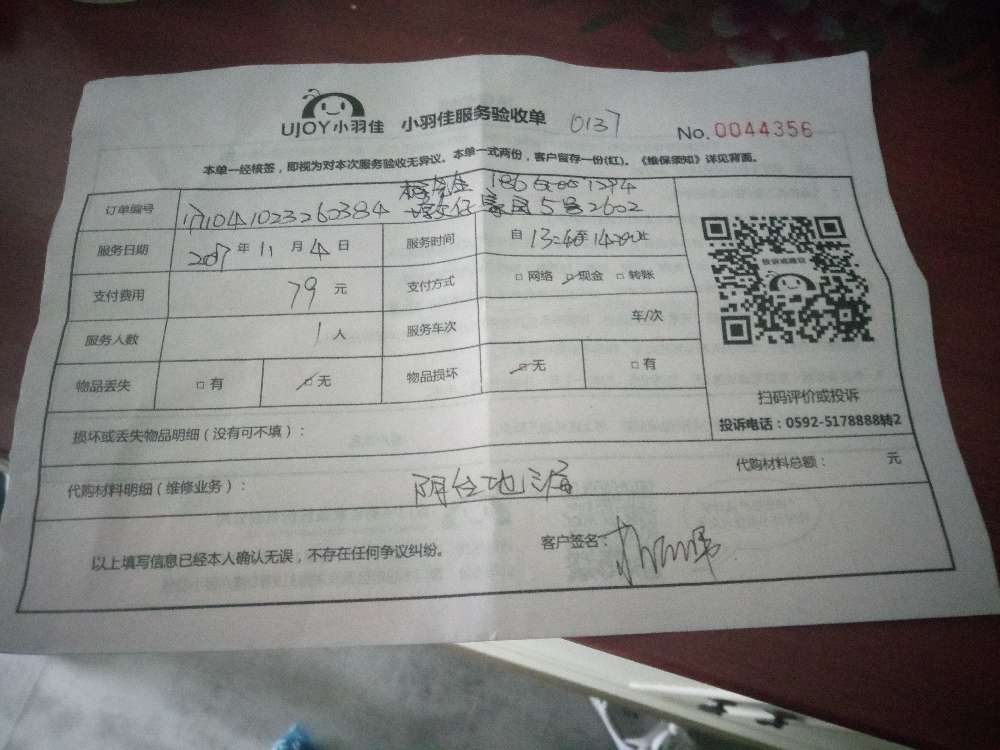 UJOY小羽佳 小羽佳服务验收单 0137 No.0044356
本单一经核签，即视为对本次服务验收无异议。本单一式两份，客户留存一份(红)。《维保须知》详见背面。
订单编号 1711041023260384 家园5号2602
服务日期 2017年11月4日 服务时间 自13:40至
支付费用 79元 支付方式 □网络 □现金 □转账
服务人数 1人 服务车次 车/次
物品丢失 □有 □无 物品损坏 □无 □有
投诉或建议
扫码评价或投诉
投诉电话：0592-5178888转2
损坏或丢失物品明细（没有可不填）：
代购材料明细（维修业务）： 阳台地漏 代购材料总额： 元
以上填写信息已经本人确认无误，不存在任何争议纠纷。 客户签名：